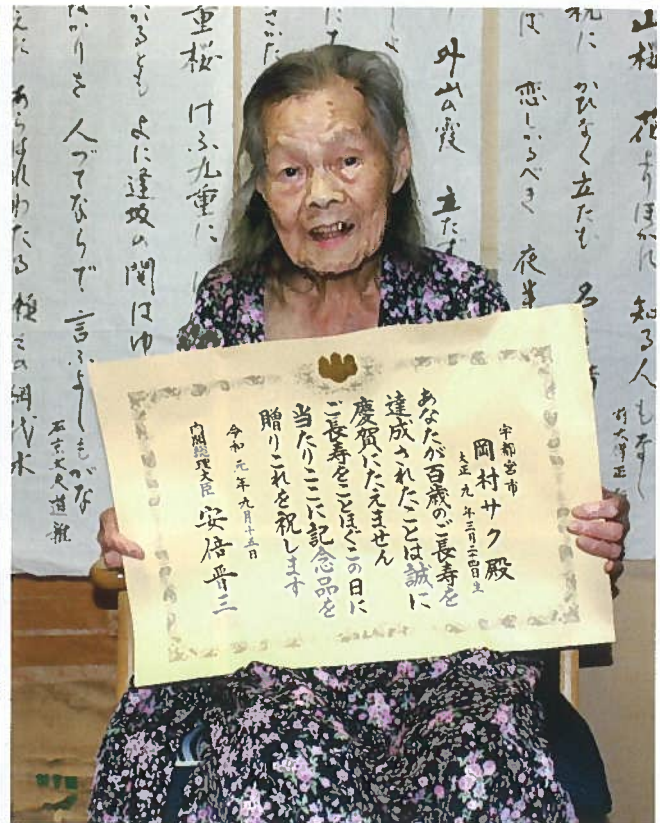 山桜 花よりほかに 知る人もなし
前大僧正
枕に かひなく立たむ 名
は 恋しかるべき 夜半
外山の霞 立たず
重桜 けふ九重に
かるとも よに逢坂の関はゆ
ばかりを 人づてならで 言ふよしもがな
左京大夫道雅
えに あらはれわたる 瀬々の網代木
宇都宮市
岡村サク殿
大正九年三月二十四日生
あなたが百歳のご長寿を
達成されたことは誠に
慶賀にたえません
ご長寿をことほぐこの日に
当たりここに記念品を
贈りこれを祝します
令和元年九月十五日
内閣総理大臣 安倍晋三